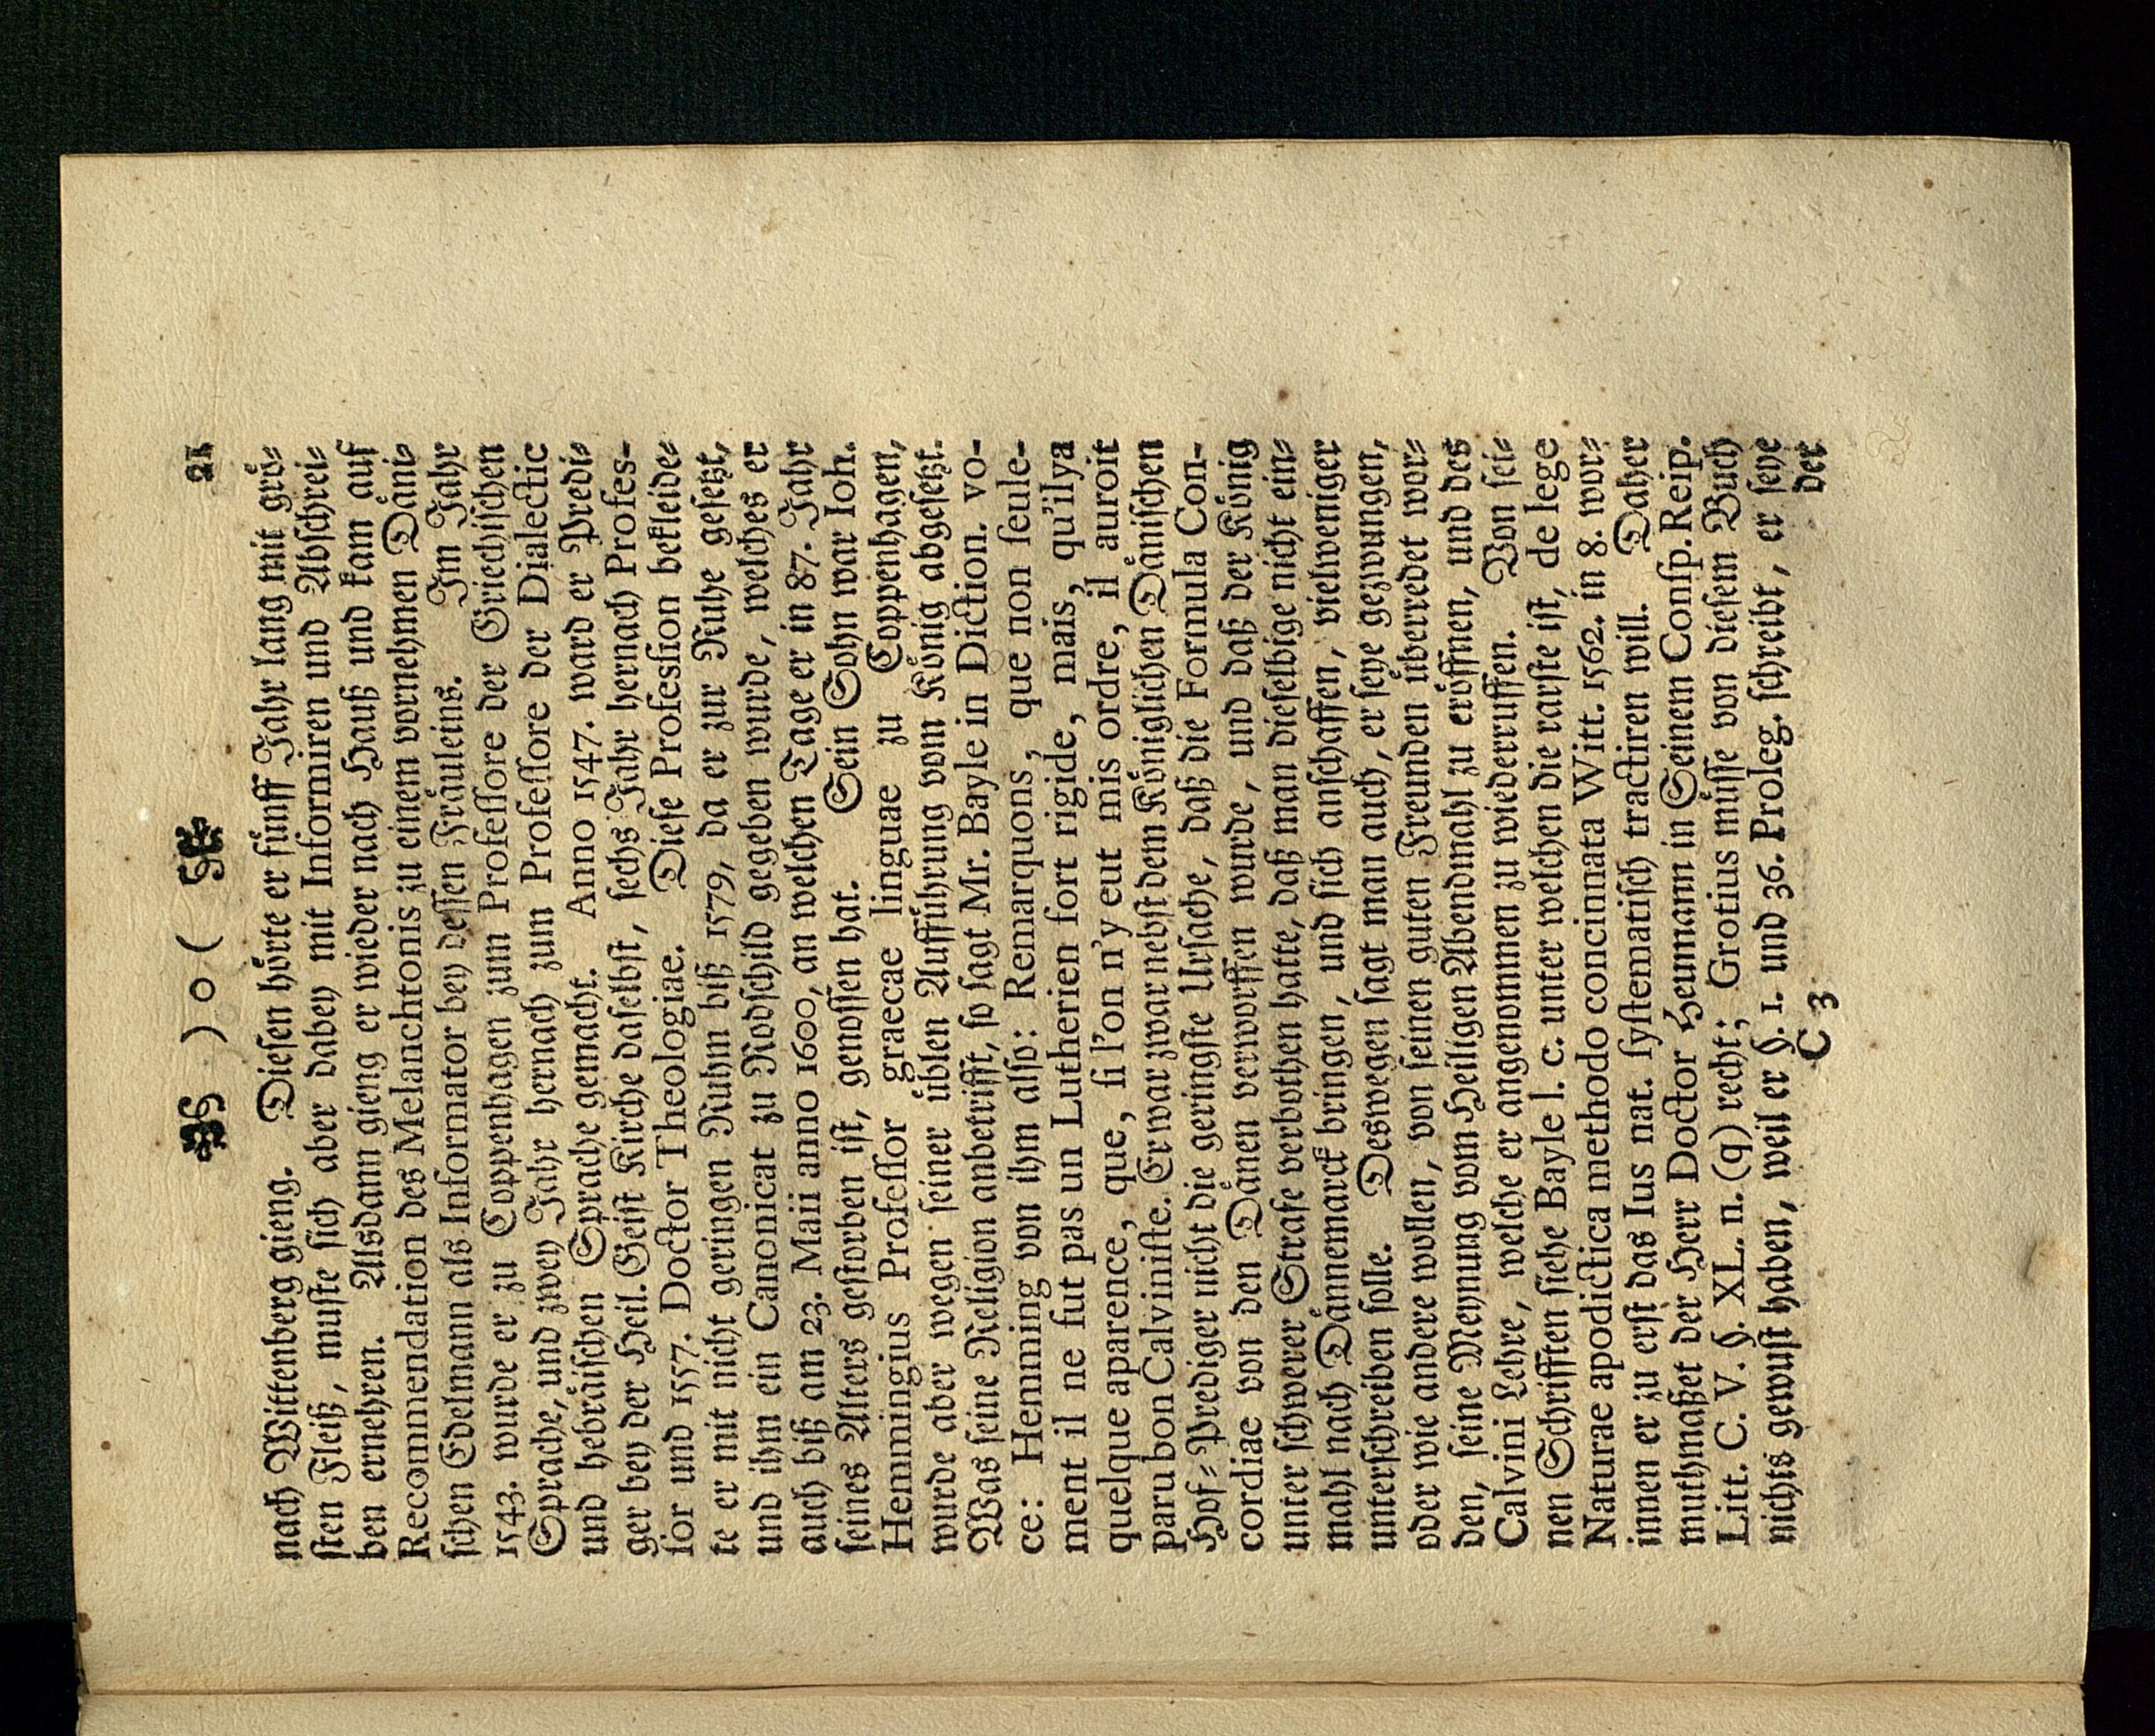 ❧ ) o ( ❧ 21
nach Wittenberg gieng. Dieſen hoͤrte er fuͤnff Jahr lang mit groͤ⸗
ſten Fleiß, muſte ſich aber dabey mit Informiren und Abſchrei⸗
ben ernehren. Alsdann gieng er wieder nach Hauß und kam auf
Recommendation des Melanchtonis zu einem vornehmen Daͤni⸗
ſchen Edelmann als Informator bey deſſen Fraͤuleins. Im Jahr
1543. wurde er zu Coppenhagen zum Profeſſore der Griechiſchen
Sprache, und zwey Jahr hernach zum Profeſſore der Dialectic
und hebraͤiſchen Sprache gemacht. Anno 1547. ward er Predi⸗
ger bey der Heil. Geiſt Kirche daſelbſt, ſechs Jahr hernach Profeſ-
ſor und 1557. Doctor Theologiae. Dieſe Profeſſion bekleide⸗
te er mit nicht geringen Ruhm biß 1579, da er zur Ruhe geſetzt,
und ihm ein Canonicat zu Rodſchild gegeben wurde, welches er
auch biß am 23. Maii anno 1600, an welchen Tage er in 87. Jahr
ſeines Alters geſtorben iſt, genoſſen hat. Sein Sohn war Ioh.
Hemmingius Profeſſor graecae linguae zu Coppenhagen,
wurde aber wegen ſeiner uͤblen Auffuͤhrung vom Koͤnig abgeſetzt.
Was ſeine Religion anbetrifft, ſo ſagt Mr. Bayle in Diction. vo-
ce: Hemming von ihm alſo: Remarquons, que non ſeule-
ment il ne fut pas un Lutherien fort rigide, mais, qu'ilya
quelque aparence, que, ſi l'on n'y eut mis ordre, il auroit
paru bon Calviniſte. Er war zwar nebſt dem Koͤniglichen Daͤniſchen
Hof⸗Prediger nicht die geringſte Urſache, daß die Formula Con-
cordiae von den Daͤnen verworffen wurde, und daß der Koͤnig
unter ſchwerer Straſe verbothen hatte, daß man dieſelbige nicht ein⸗
mahl nach Daͤnnemarck bringen, und ſich anſchaffen, vielweniger
unterſchreiben ſolle. Deswegen ſagt man auch, er ſeye gezwungen,
oder wie andere wollen, von ſeinen guten Freunden uͤberredet wor⸗
den, ſeine Meynung vom Heiligen Abendmahl zu eroͤffnen, und des
Calvini Lehre, welche er angenommen zu wiederruffen. Von ſei⸗
nen Schrifften ſiehe Bayle l. c. unter welchen die rarſte iſt, de lege
Naturae apodictica methodo concinnata Witt. 1562. in 8. wor⸗
innen er zu erſt das Ius nat. ſyſtematiſch tractiren will. Daher
muthmaßet der Herr Doctor Heumann in Seinem Conſp. Reip.
Litt. C. V. §. XL. n. (q) recht; Grotius muͤſſe von dieſem Buch
nichts gewuſt haben, weil er §. 1. und 36. Proleg. ſchreibt, er ſeye
C 3 der